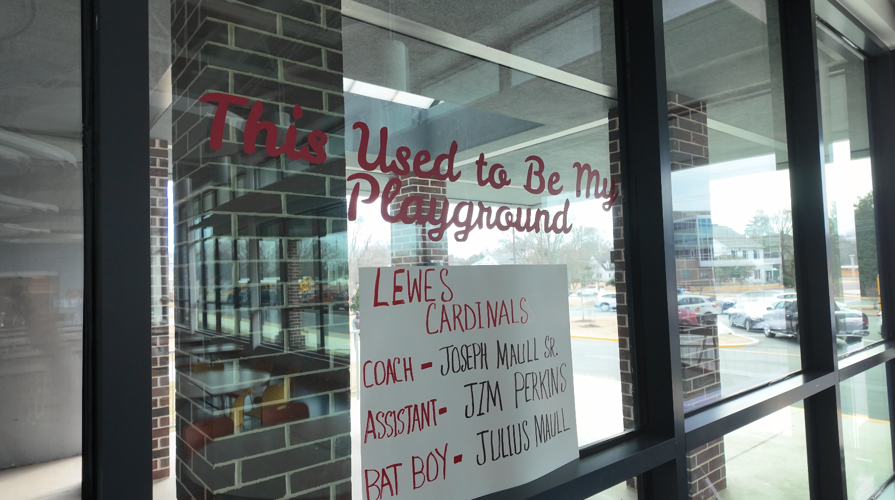 This Used to Be My
Playground
LEWES
CARDINALS
COACH - JOSEPH MAULL SR.
ASSISTANT- JIM PERKINS
BAT BOY- JULIUS MAULL